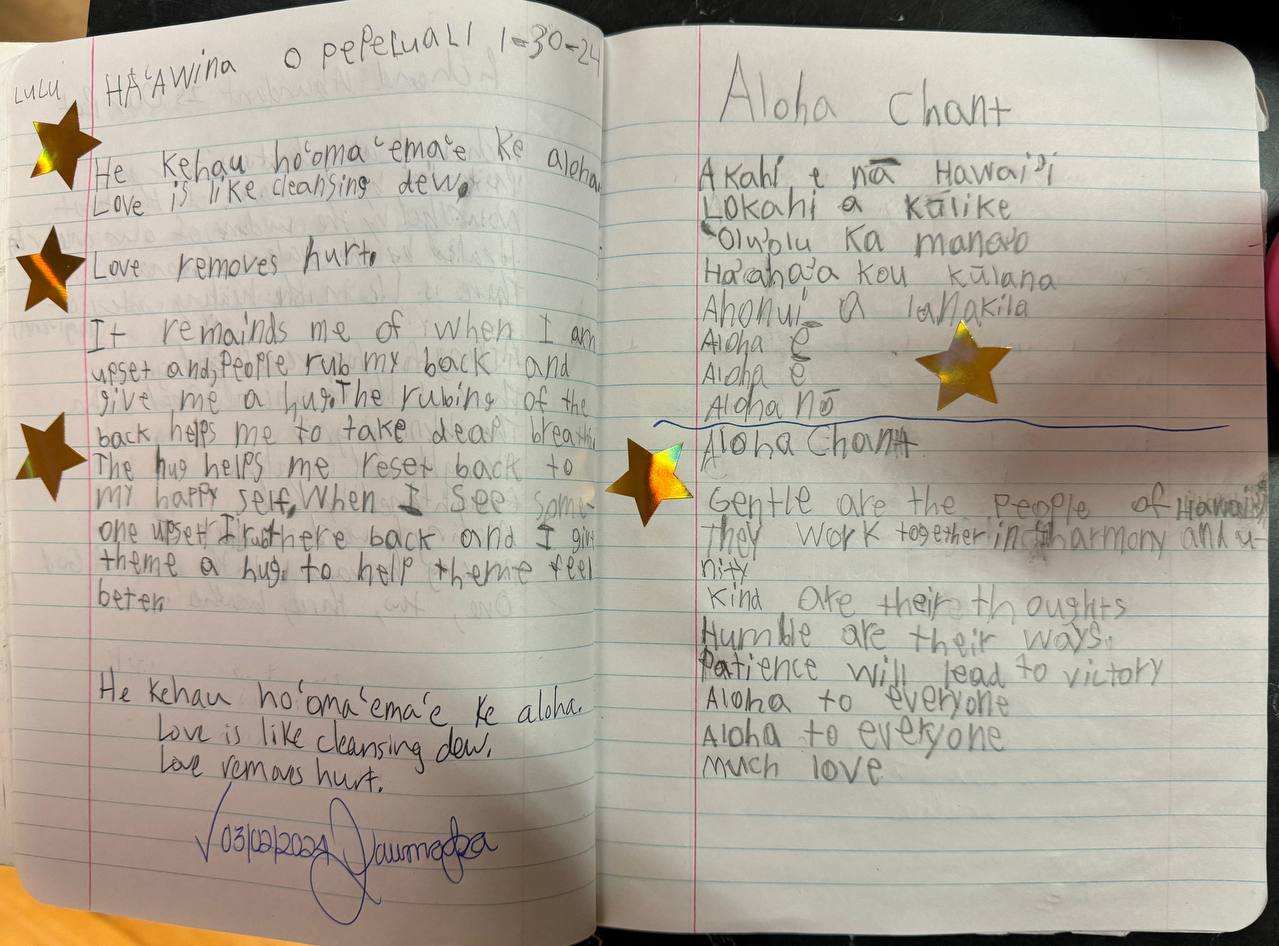 LULU HĀʻAWINA O PEPELUALI 1-30-24
He Kehau hoʻomaʻemaʻe Ke aloha.
Love is like cleansing dew.
Love removes hurt.
It remainds me of when I am
upset and, People rub my back and
give me a hug. The rubing of the
back helps me to take deap breaths.
The hug helps me reset back to
my happy self, When I see some-
one upset I rub there back and I give
theme a hug. to help theme feel
beter.
He Kehau hoʻomaʻemaʻe Ke aloha.
Love is like cleansing dew.
Love removes hurt.
√ 03/02/2024
Aloha Chant
Akahi e nā Hawaiʻi
Lokahi a Kūlike
ʻOluʻolu Ka manaʻo
Haʻahaʻa kou kūlana
Ahonui a lanakila
Aloha ē
Aloha ē
Aloha nō
Aloha Chant
Gentle are the people of Hawaiʻi
They work together in harmony and u-
nity
Kind are their thoughts
Humble are their ways.
Patience will lead to victory
Aloha to everyone
Aloha to everyone
much love